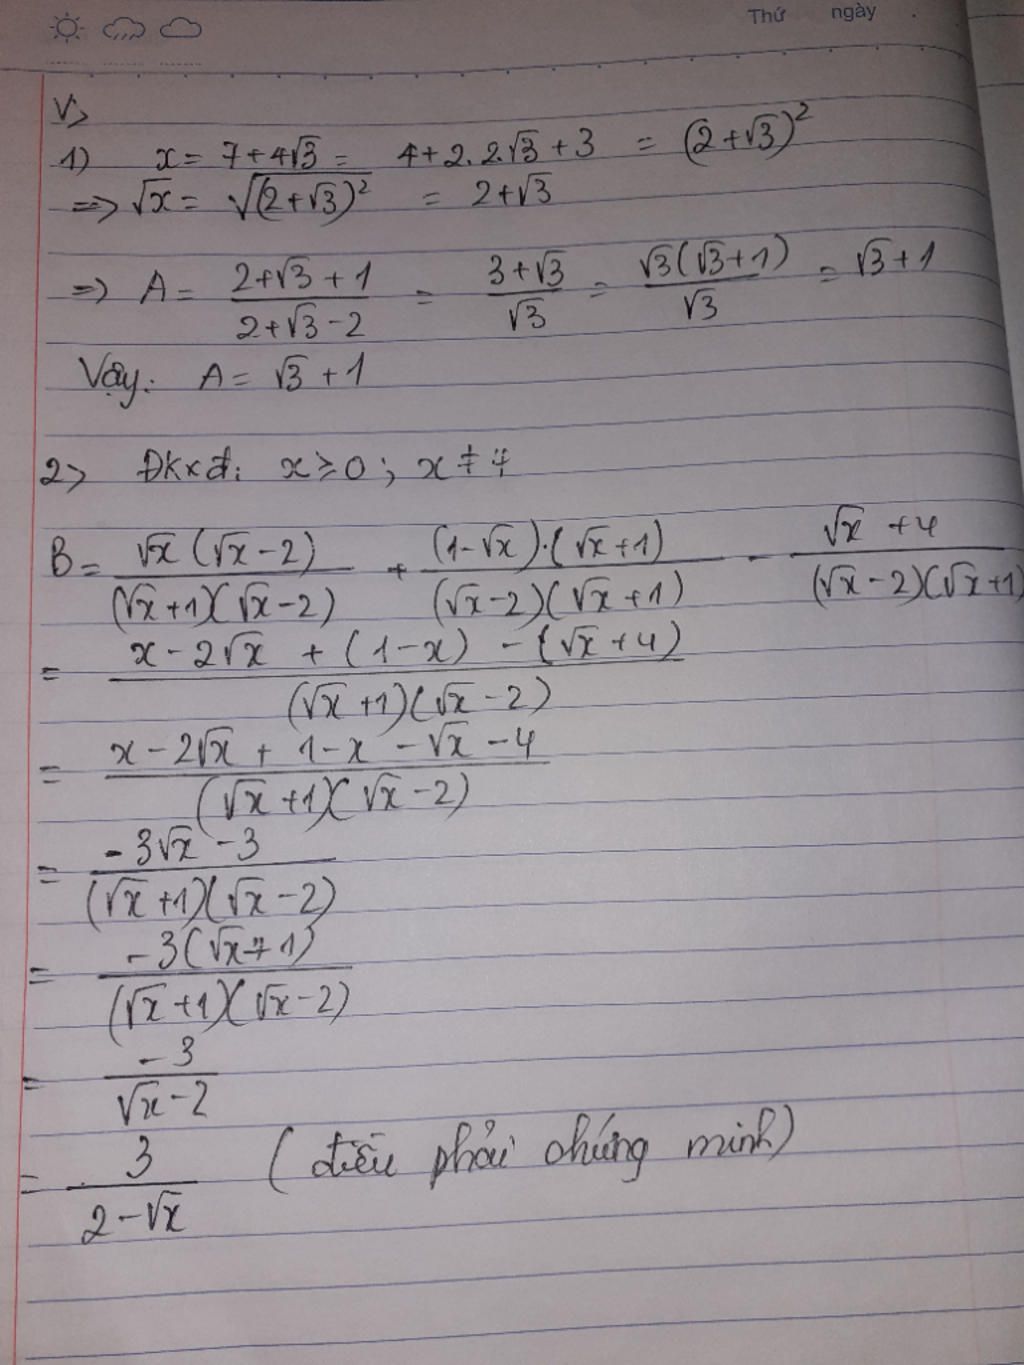 Thứ ngày
V>
1) x = 7+4√3 = 4+2.2.√3+3 = (2+√3)²
=> √x = √(2+√3)² = 2+√3
=> A = (2+√3+1)/(2+√3-2) = (3+√3)/√3 = √3(√3+1)/√3 = √3+1
Vậy: A = √3+1
2> ĐKxđ: x ≥ 0; x ≠ 4
B = √x(√x-2)/(√x+1)(√x-2) + (1-√x).(√x+1)/(√x-2)(√x+1) - √x+4/(√x-2)(√x+1)
= x-2√x+(1-x)-(√x+4)/(√x+1)(√x-2)
= x-2√x+1-x-√x-4/(√x+1)(√x-2)
= -3√x-3/(√x+1)(√x-2)
= -3(√x+1)/(√x+1)(√x-2)
= -3/√x-2
= 3/2-√x (điều phải chứng minh)